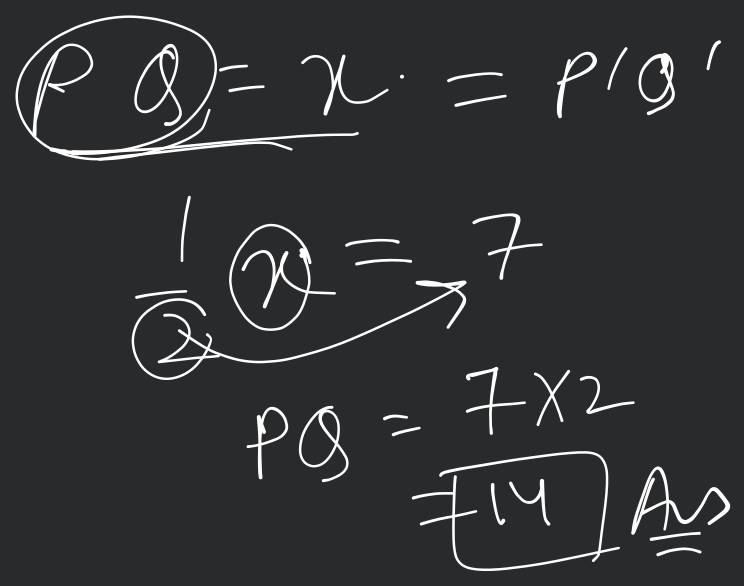 PQ = x. = P'Q'
1/2 x = 7
PQ = 7 x 2
= 14 Ans